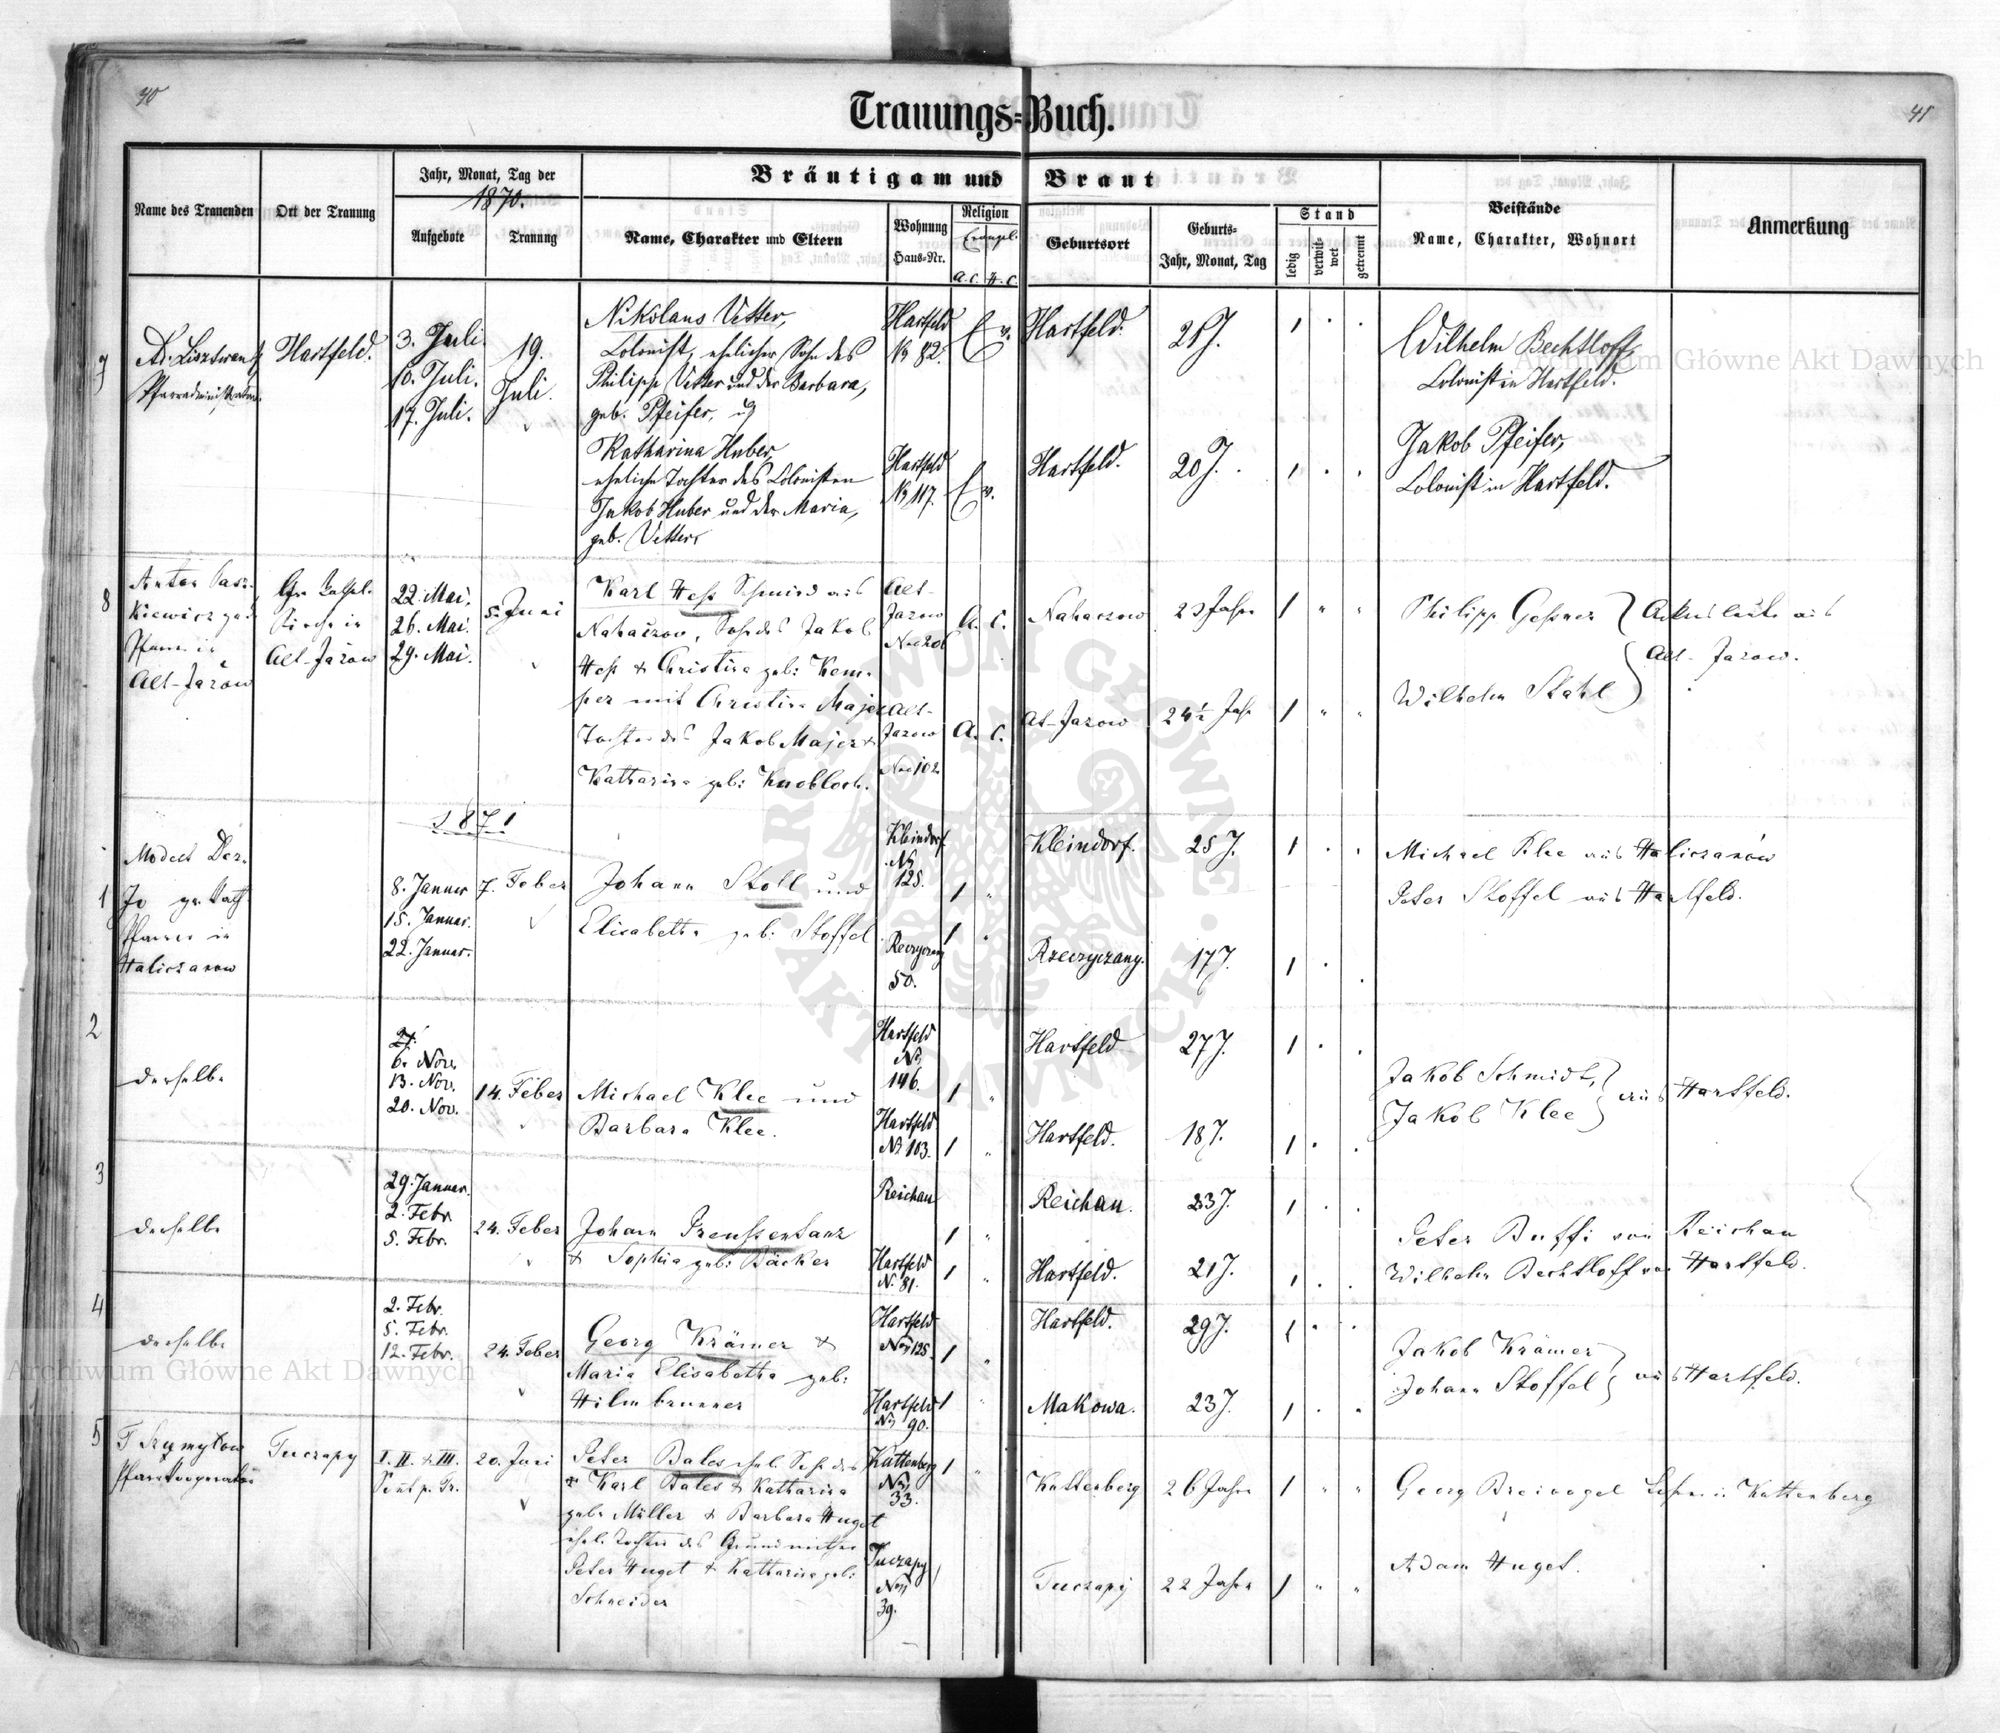 40
41
Trauungs=Buch.
Name des Trauenden
Ort der Trauung
Jahr, Monat, Tag der
1870.
Aufgebote
Trauung
Bräutigam und Braut
Name, Charakter und Eltern
Wohnung
Haus-Nr.
Religion
Evangel.
A. C. H. C.
Geburtsort
Geburts-
Jahr, Monat, Tag
Stand
ledig
verwit-
wet
getrennt
Beistände
Name, Charakter, Wohnort
Anmerkung
7
Pfarradministrator.
Hartfeld.
3. Juli.
10. Juli.
17. Juli.
19.
Juli.
Nikolaus Vetter,
Colonist, ehelicher Sohn des
Philipp Vetter und der Barbara,
geb. Pfeifer, u
Katharina Huber,
eheliche Tochter des Colonisten
Jakob Huber und der Maria,
geb. Vetter.
Hartfeld
№ 82.
Hartfeld
№ 117.
Ev.
Ev.
Hartfeld.
Hartfeld.
20 J.
Wilhelm Bechtloff,
Colonist in Hartfeld.
Jakob Pfeifer,
Colonist in Hartfeld.
8
Anton
Pfarrer in
Alt-Jazow
Kirche in
Alt-Jazow
22. Mai.
26. Mai.
29. Mai.
5. Juni
Karl Heß Schmied aus
Nahaczow, Sohn des Jakob
Heß & Christina geb: Kem-
per mit Christina Majer
Tochter des Jakob Majer &
Katharina geb: Knobloch.
Alt-
Jazow
Alt-
Jazow
Nro 102
A. C.
A. C.
Nahaczow
Alt-Jazow
23 Jahre
24½ Jahr
Philipp Geßner
Wilhelm Stahl
Ackersleute aus
Alt-Jazow.
1871
1
Modest
Pfarrer in
Haliczanow
8. Januar
15. Januar.
22. Januar.
7. Feber
Johann Stoll und
Elisabetha geb: Stoffel
Kleindorf
№
125.
50.
Kleindorf.
Rzeczyczany.
25 J.
17 J.
Michael Klee aus Haliczanów
Peter Stoffel aus Hartfeld.
2
derselbe
6. Nov.
13. Nov.
20. Nov.
14. Feber
Michael Klee und
Barbara Klee.
Hartfeld
№
146.
Hartfeld
№ 103.
Hartfeld
Hartfeld.
27 J.
18 J.
Jakob Schmidt,
Jakob Klee
aus Hartfeld.
3
derselbe
29. Januar.
2. Febr.
5. Febr.
24. Feber
Johann Preussentanz
& Sophia geb: Bäcker
Reichau
Hartfeld
N. 81.
Reichau.
Hartfeld.
23 J.
21 J.
Peter Buffi von Reichau
Wilhelm Bechtloff von Hartfeld.
4
derselbe
2. Febr.
5. Febr.
12. Febr.
24. Feber
Georg Krämer &
Maria Elisabetha geb:
Hilmbrunner
Hartfeld
№ 125.
Hartfeld
№ 90.
Hartfeld.
Makowa.
29 J.
23 J.
Jakob Krämer
Johann Stoffel
aus Hartfeld.
5
Pfarrkooperator
Tuczapy
I. II. & III.
Sont p. Tr.
20. Juni
Peter Bales ehel. Sohn des
Karl Bales & Katharina
geb: Müller & Barbara Huget
ehel. Tochter des Grundwirthes
Peter Huget & Katharina geb:
Schneider
Kattenberg
№
33.
Tuczapy
№
39.
Kattenberg
Tuczapy
26 Jahre
22 Jahre
Georg Breivogel in Kattenberg
Adam Huget.
Archiwum Główne Akt Dawnych
Archiwum Główne Akt Dawnych
ARCHIWUM GŁÓWNE AKT DAWNYCH